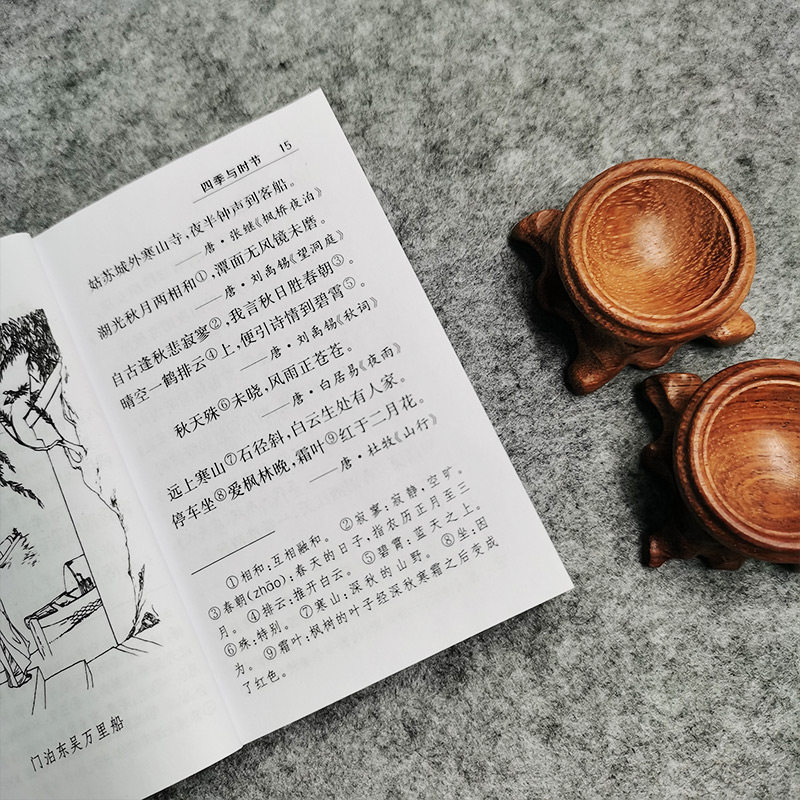 门泊东吴万里船
四季与时节 15
姑苏城外寒山寺,夜半钟声到客船。
——唐·张继《枫桥夜泊》
湖光秋月两相和①,潭面无风镜未磨。
——唐·刘禹锡《望洞庭》
自古逢秋悲寂寥②,我言秋日胜春朝③。
晴空一鹤排云④上,便引诗情到碧霄⑤。
——唐·刘禹锡《秋词》
秋天殊⑥未晓,风雨正苍苍。
——唐·白居易《夜雨》
远上寒山⑦石径斜,白云生处有人家。
停车坐⑧爱枫林晚,霜叶⑨红于二月花。
——唐·杜牧《山行》
①相和:互相融和。 ②寂寥:寂静,空旷。
③春朝(zhāo):春天的日子;指农历正月至三
月。 ④排云:推开白云。 ⑤碧霄:蓝天之上。
⑥殊:特别。 ⑦寒山:深秋的山野。 ⑧坐:因
为。 ⑨霜叶:枫树的叶子经深秋寒霜之后变成
了红色。